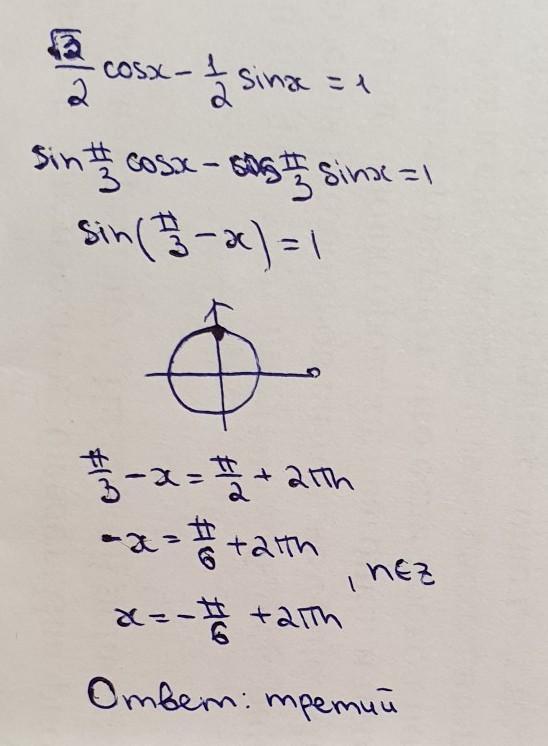 √3/2 cosx - 1/2 sinx = 1
sin π/3 cosx - cos π/3 sinx = 1
sin(π/3 - x) = 1
π/3 - x = π/2 + 2πn
-x = π/6 + 2πn
x = -π/6 + 2πn , n∈Z
Ответ: третий